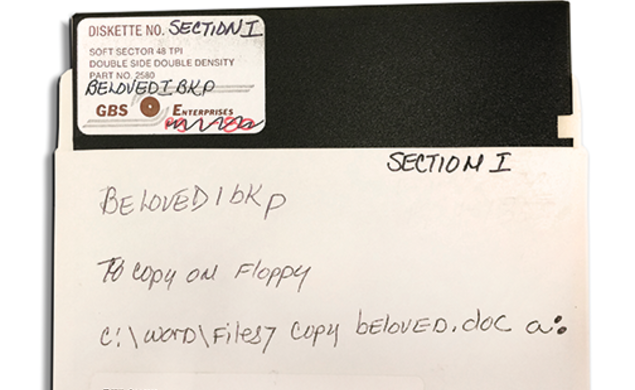 DISKETTE NO. SECTION I
SOFT SECTOR 48 TPI
DOUBLE SIDE DOUBLE DENSITY
PART NO. 2580
BELOVEDIBKP
GBS ENTERPRISES
SECTION I
BELOVEDIbKp
To copy on Floppy
C:\WORD\Files7 Copy bELOVED.doc a: